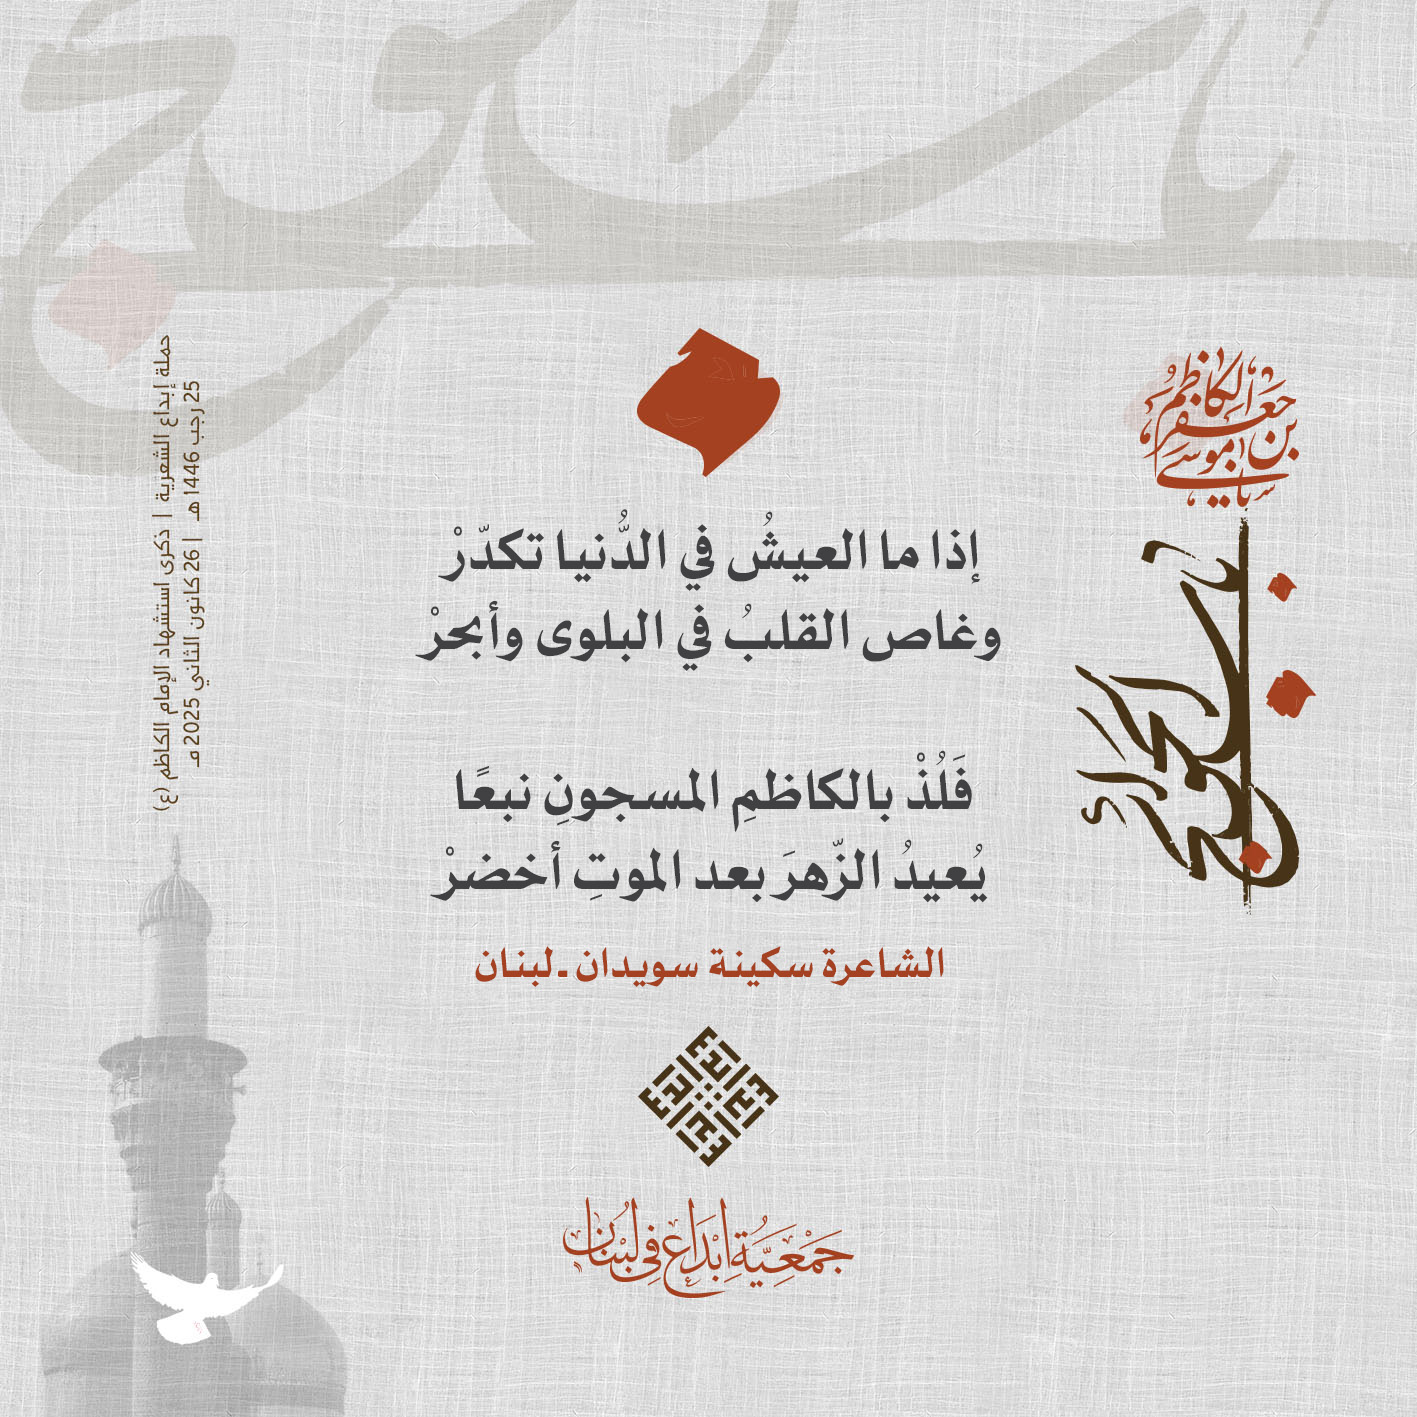 إذا ما العيشُ في الدُّنيا تكدّرْ
وغاص القلبُ في البلوى وأبحرْ
فَلُذْ بالكاظمِ المسجونِ نبعًا
يُعيدُ الزّهرَ بعد الموتِ أخضرْ
الشاعرة سكينة سويدان ـ لبنان
جَمْعِيَّةُ إِبْدَاع فِي لُبْنَان
باب الحوائج
يا موسى
بن جعفر الكاظم
حملة إبداع الشعرية | ذكرى استشهاد الإمام الكاظم (ع)
25 رجب 1446 هـ | 26 كانون الثاني 2025 مـ